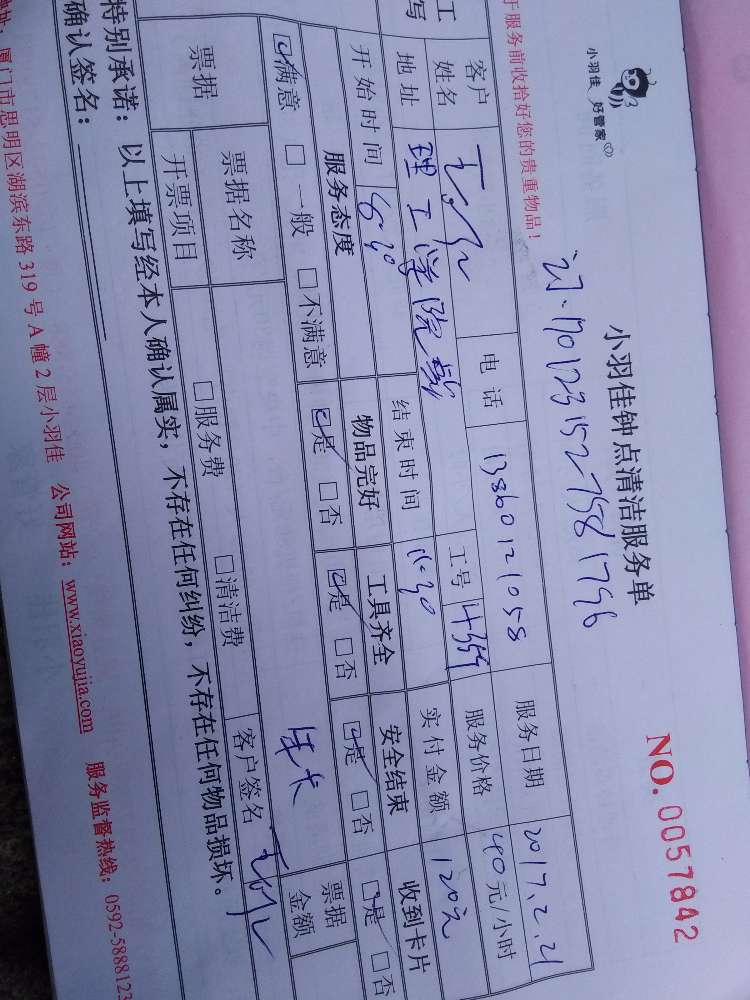 小羽佳 好管家
小羽佳钟点清洁服务单
NO. 0057842
订.1701231527581796
于服务前收拾好您的贵重物品！
客户 姓名 电话 13860121058 服务日期 2017.2.21
工号 4359 服务价格 40元/小时
地址 理工学院 实付金额 120元
开始时间 8:30 结束时间 11:30
服务态度 物品完好 工具齐全 安全结束 收到卡片
☑满意 □一般 □不满意 ☑是 □否 ☑是 □否 ☑是 □否 ☑是 □否
年卡
票据 票据名称 □服务费 □清洁费 票据金额
开票项目 客户签名
特别承诺：以上填写经本人确认属实，不存在任何纠纷，不存在任何物品损坏。
确认签名：
地址：厦门市思明区湖滨东路319号A幢2层小羽佳 公司网站：www.xiaoyujia.com 服务监督热线：0592-5888123